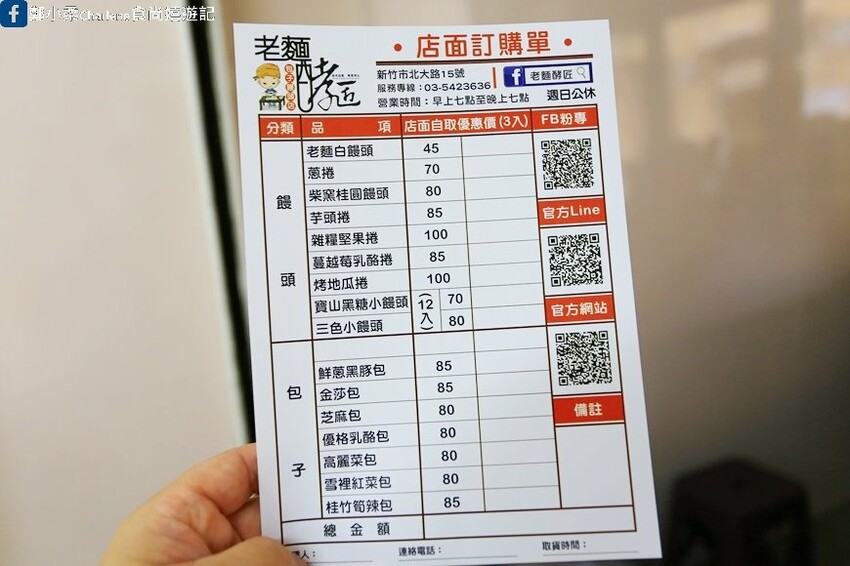 鄭小柔Charlene食尚嬉遊記
老麵
酵匠
包子饅頭店
• 店面訂購單 •
新竹市北大路15號
服務專線：03-5423636
營業時間：早上七點至晚上七點 週日公休
老麵酵匠
分類 品項 店面自取優惠價(3入) FB粉專
饅頭
老麵白饅頭 45
蔥捲 70
柴窯桂圓饅頭 80
芋頭捲 85
官方Line
雜糧堅果捲 100
蔓越莓乳酪捲 85
烤地瓜捲 100
寶山黑糖小饅頭 (12入) 70
官方網站
三色小饅頭 80
包子
鮮蔥黑豚包 85
金莎包 85
芝麻包 80
備註
優格乳酪包 80
高麗菜包 80
雪裡紅菜包 80
桂竹筍辣包 85
總金額
人： 連絡電話： 取貨時間：